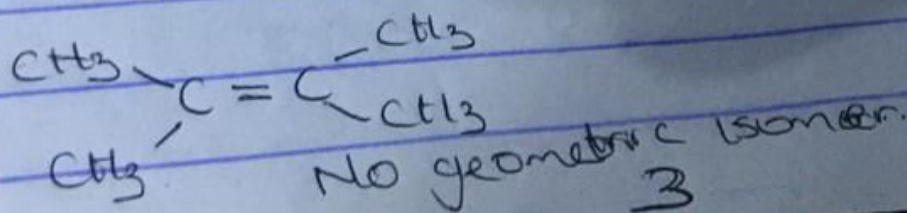 CH3 CH3
C = C
CH3 CH3
No geometric isomer.
3